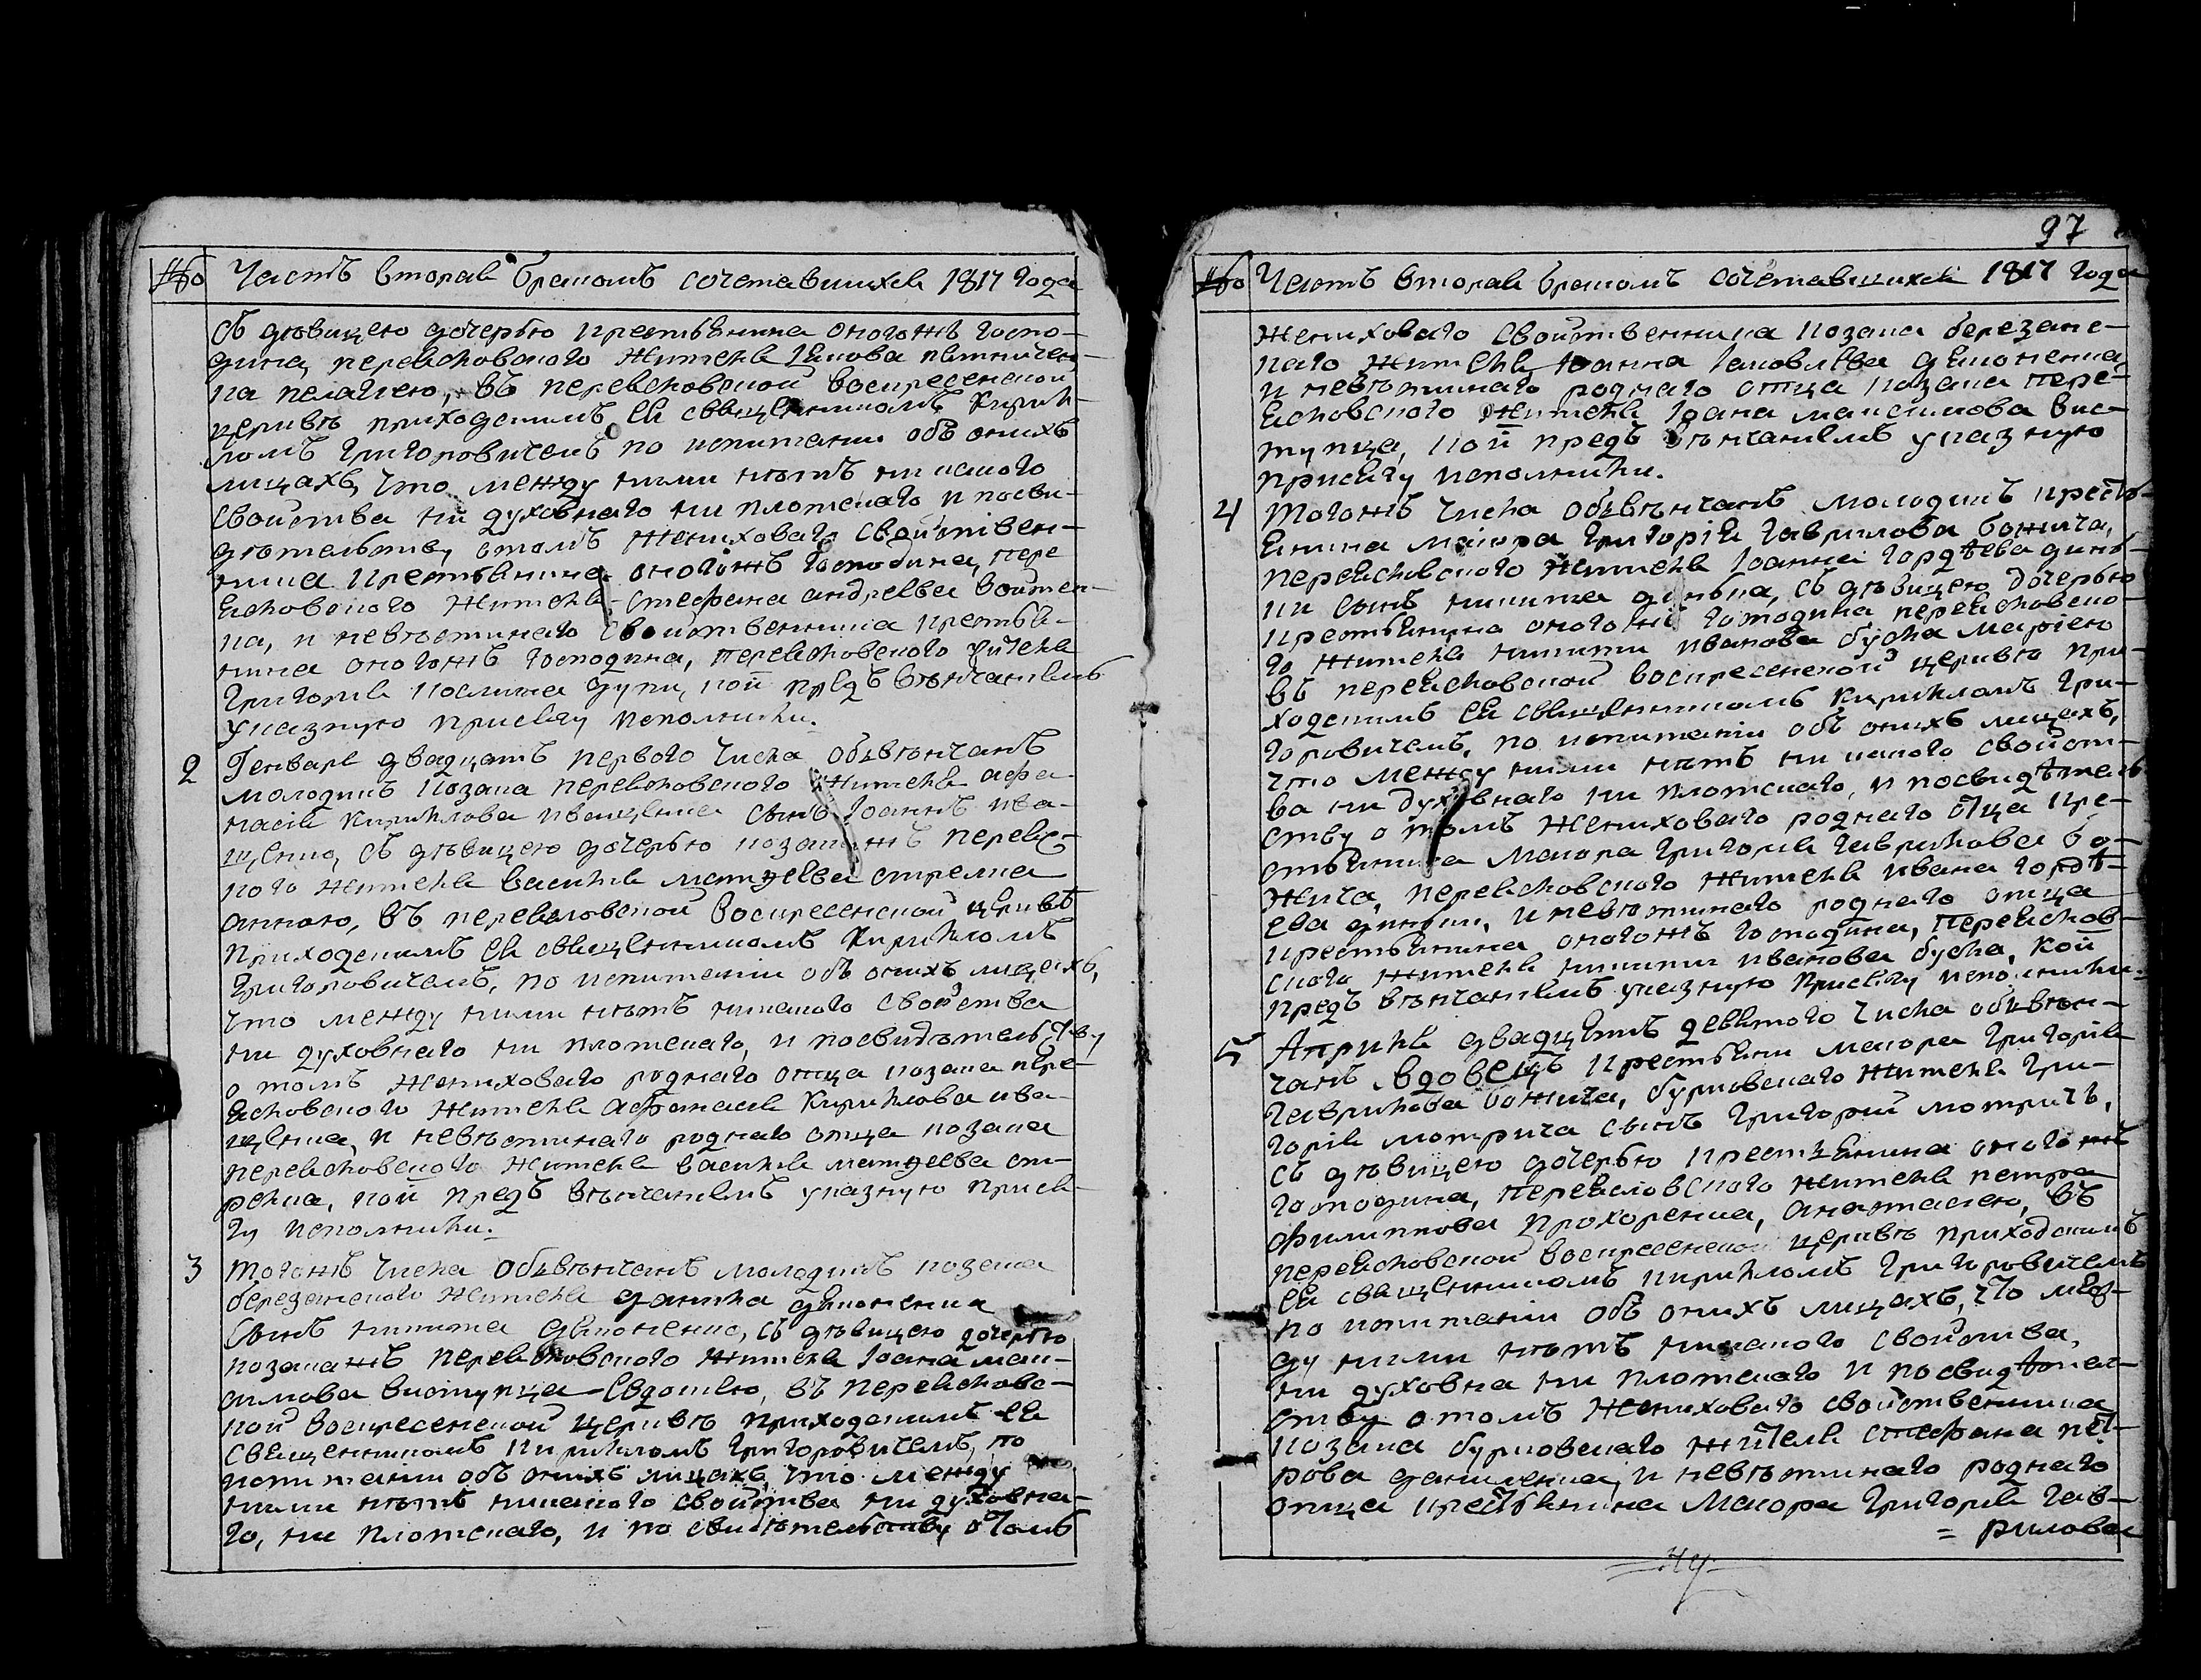 № Часть вторая бракомъ сочетавшихся 1817 года
съ дѣвицею дочерью крестьянина оногожъ госпо-
дина, переясловского жителя Іякова
ка пелагіею, въ переясловской воскресенской
церквѣ приходскимъ ея священникомъ Кирил-
ломъ Григоровичемъ по испитании объ онихъ
лицахъ, что между ними нѣтъ ни какого
свойства ни духовнаго ни плотскаго и посви-
дѣтельству о томъ Жениховаго свойствен-
ника крестьянина оногожъ господина, пере
ясловского жителя Стефана андреева воитен-
ка, и невѣстинаго свойственника крестья-
нина оногожъ господина, переясловского жителя
Григория косминка дупи, кои предъ вѣнчаніемъ
указную присягу исполнили.
2 Генваря двадцать первого числа обвѣнчанъ
молодикъ козака переясловского жителя афа-
насія кириллова иващенка синъ Іоаннъ ива-
щенко, съ дѣвицею дочерью козакажъ переяс-
кого жителя василия матвеева стрелка
анною, въ переясловской воскресенской церквѣ
приходскимъ ея священникомъ Кирилломъ
Григоровичемъ, по испитаніи объ онихъ лицахъ,
что между ними нѣтъ никакого свойства
ни духовнаго ни плотскаго, и посвидѣтельству
о томъ Жениховаго роднаго отца козака пере-
ясловского жителя Афанасія Кириллова ива-
щенка, и невѣстинаго роднаго отца козака
переясловского жителя василия матвеева ст-
релка, кои предъ вѣнчаніемъ указную прися-
гу исполнили.
3 тогожъ числа обвѣнчанъ молодикъ козака
березанского жителя данила дяконенка
синъ никита дяконенко, съ дѣвицею дочерью
козакажъ переясловского жителя Іоана мак-
симова виступца Евдокіею, въ переясловс-
кой воскресенской церквѣ приходскимъ ея
священникомъ кирилломъ Григоровичемъ, по
испитании объ онихъ лицахъ, что между
ними нѣтъ никакого свойства ни духовна-
го, ни плотскаго, и по свидѣтельству о томъ
97
№ Часть вторая бракомъ сочетавшихся 1817 года
жениховаго свойственника козака березанс-
каго жителя Іоанна Іаковлева дяконенка
и невѣстинаго роднаго отца козака пере-
ясловского жителя Іоана максимова вис-
тупца, кои предъ вѣнчаніемъ указную
присягу исполнили.
4 Тогожъ числа обвѣнчанъ молодикъ кресть-
янина маіора Григорія Гаврилова божича,
переясловского жителя Іоанна гордѣева
синъ никита съ дѣвицею дочерью
крестьянина оногожъ господина переясловско-
го жителя никити иванова буска маріею
въ переясловской воскресенской церквѣ при-
ходскимъ ея священникомъ Кирилломъ Гри-
горовичемъ, по испитаніи объ онихъ лицахъ,
что между ними нѣтъ ни какого свойст-
ва ни духовнаго ни плотскаго, и посвидѣтель
ству о томъ Жениховаго роднаго отца кре-
стьянина Маіора Григорія Гаврилова бо-
жича, переясловского жителя ивана гордѣ-
ева и невѣстинаго роднаго отца
крестьянина оногожъ господина, переяслов-
ского жителя никити иванова буска, кои
предъ вѣнчаніемъ указную присягу исполнили.
5 Апрѣля двадцять девятого числа обвѣн-
чанъ вдовецъ крестьянин маіора Григорія
Гаврилова божича, бурковскаго жителя Гри-
горія мотрича синъ Григорий мотричъ,
съ дѣвицею дочерью крестьянина оногожъ
господина, переясловского жителя петра
филиппова прохоренка, Анастасіею, въ
переясловской воскресенской церквѣ приходскимъ
ея священникомъ кирилломъ Григоровичемъ
по испитаніи объ онихъ лицахъ, что меж-
ду ними нѣтъ никакого свойства,
ни духовна ни плотскаго и посвидѣтел-
ству о томъ Жениховаго свойственника
козака бурковскаго жителя стефана пет-
рова даниленка, и невѣстинаго роднаго
отца крестьянина Маіора Григорія Гав-
= рилова